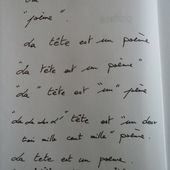 La
"poème".
La tête est un poème.
"La tête est un poème"
"La" tête est "un" poème
"La da da d" tête est "un deux
trois mille cent mille" poème.
La tête est un poème.